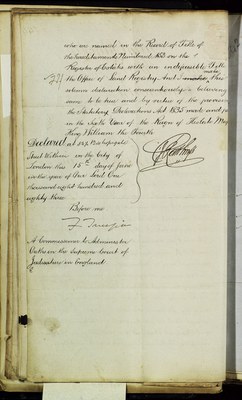 who are named in the Record of Title of
the hereditaments Numbered 163 on the
Register of Estates with an indefeasible Title
the Office of Land Registry And I make this
solemn declaration conscientiously believing
same to be true and by virtue of the provisions
the Statutory Declarations Act 1835 made and
in the Sixth Year of the Reign of His late Maj
King William the Fourth
Declared at 147 Bishopsgate
Street Within in the City of
London this 15th day of June
in the year of Our Lord One
thousand eight hundred and
eighty three
Before me
A Commissioner to Administer
Oaths in the Supreme Court of
Judicature in England